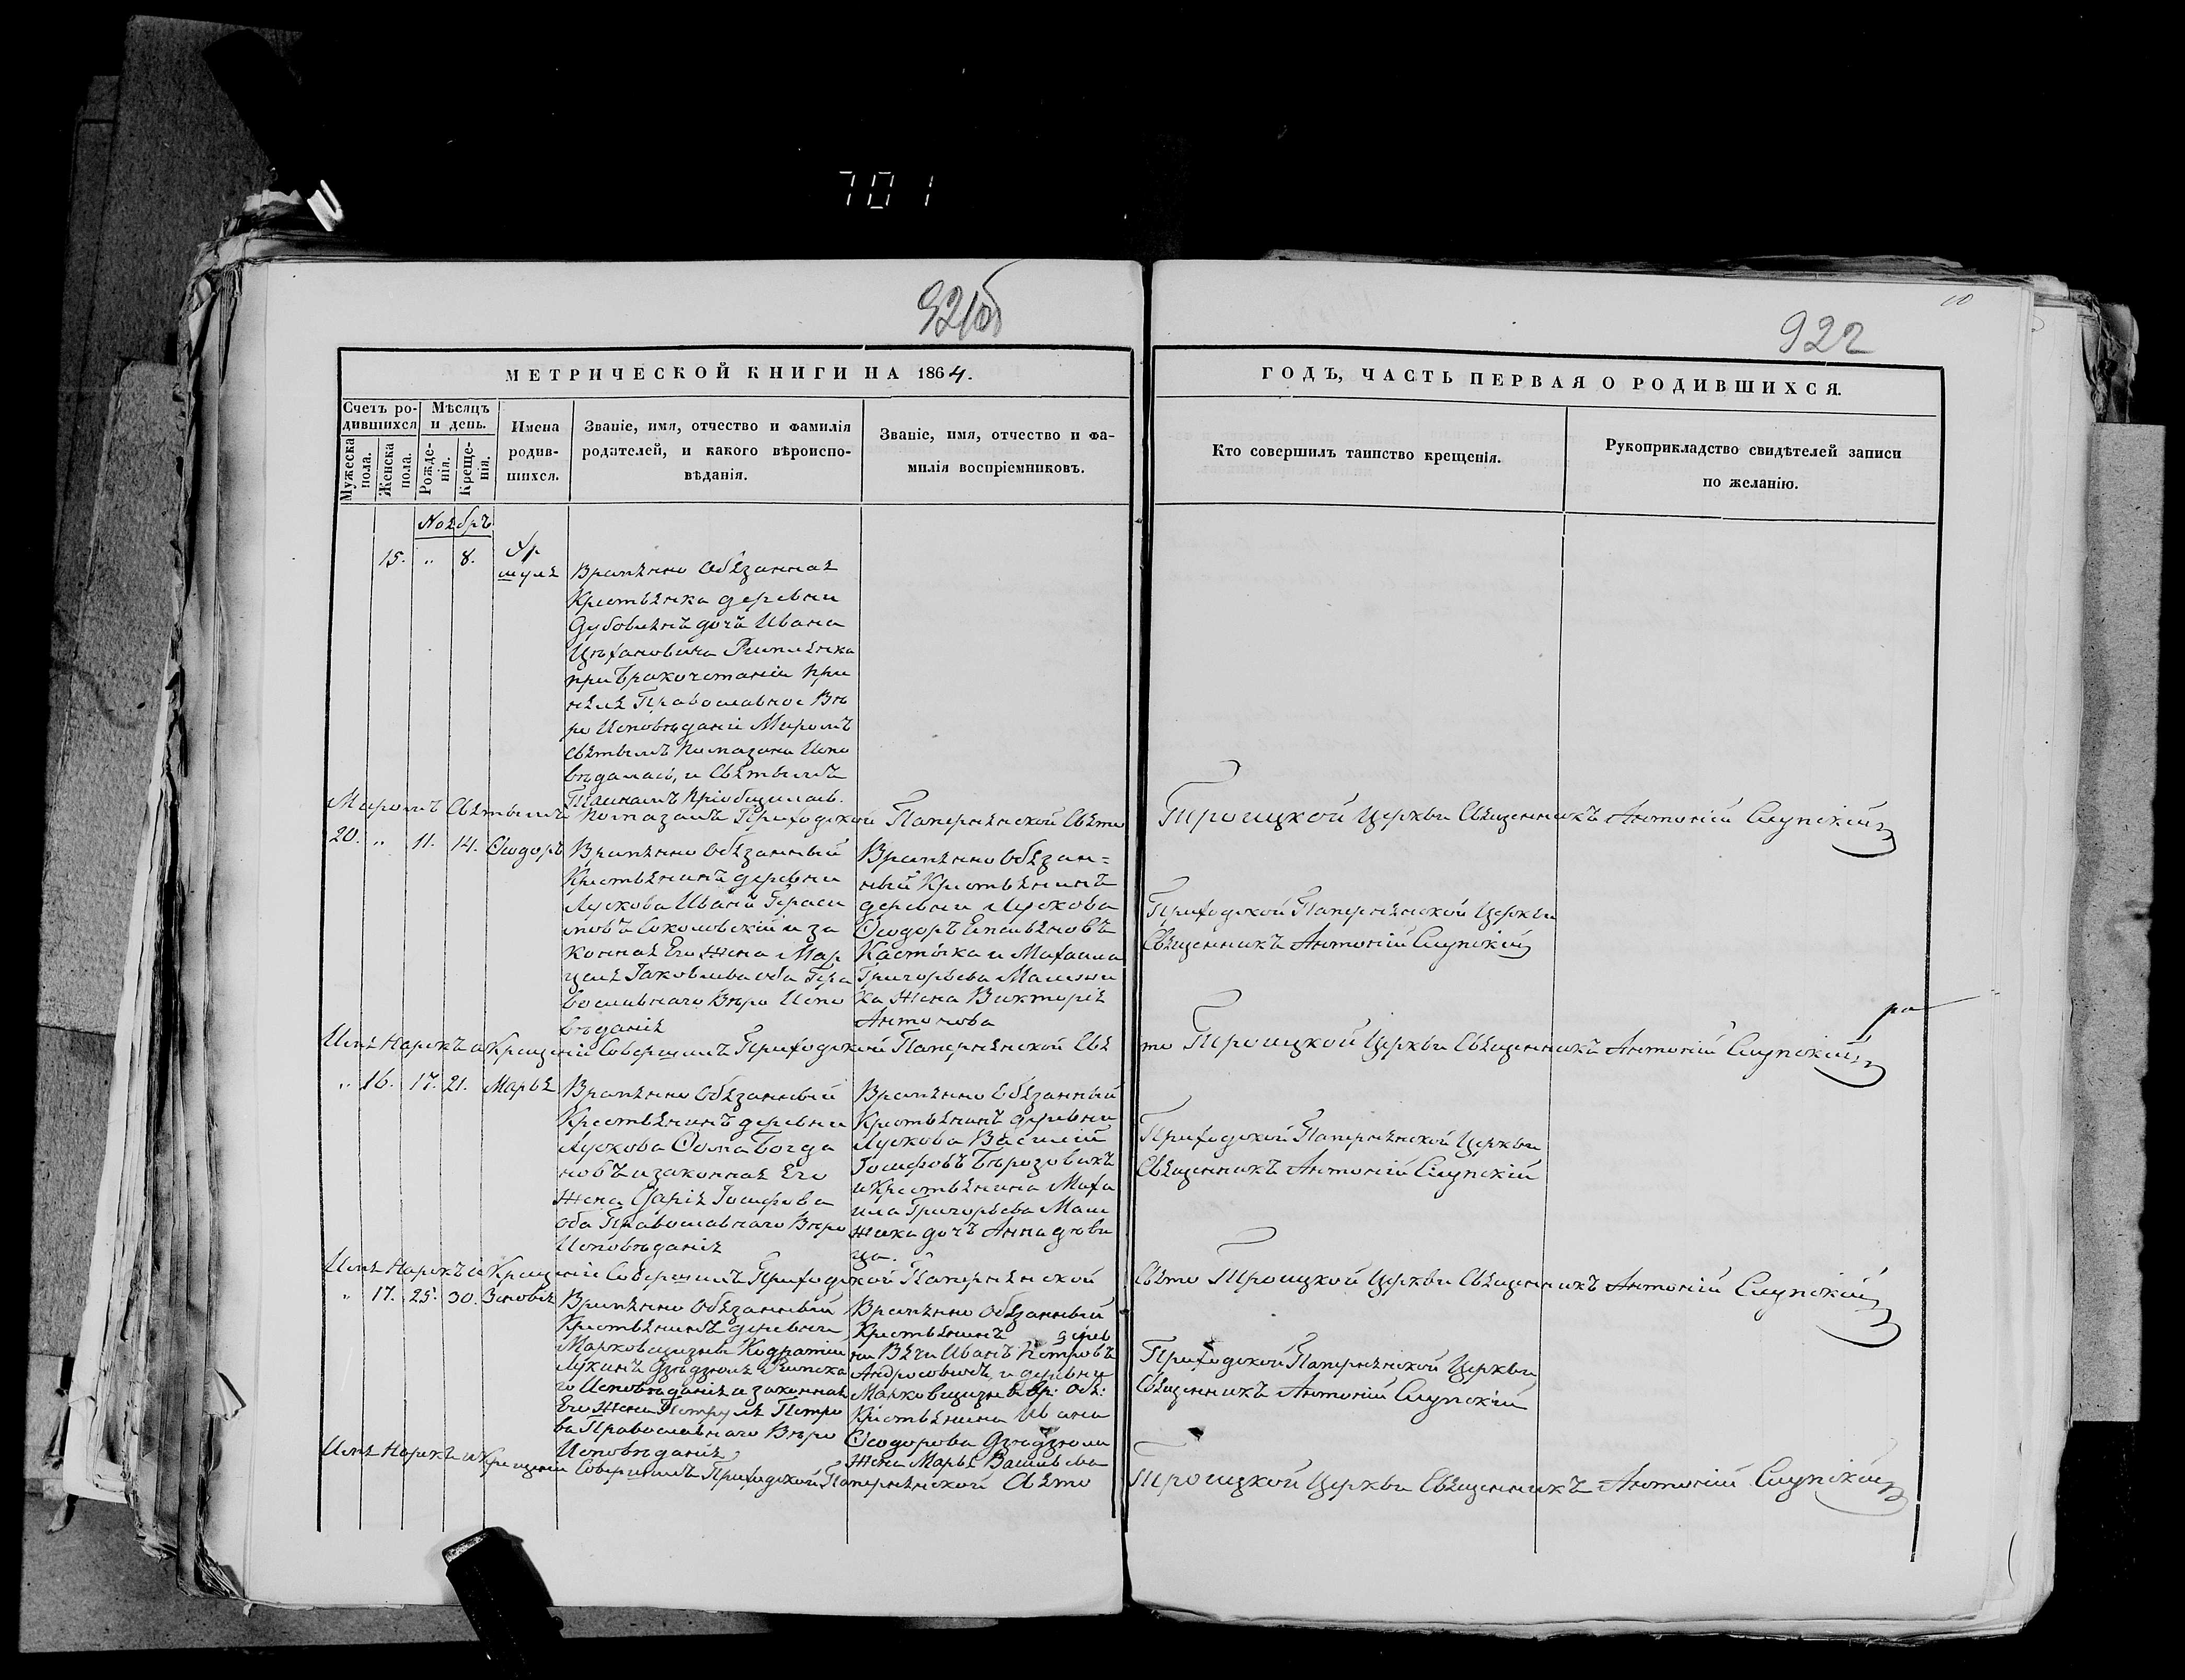 701
921об
10
922
МЕТРИЧЕСКОЙ КНИГИ НА 1864.
Счетъ ро-
дившихся
Мужеска
пола.
Женска
пола.
Мѣсяцъ
и день.
Рожде-
нія.
Креще-
нія.
Имена
родив-
шихся.
Званіе, имя, отчество и фамилія
родителей, и какого вѣроиспо-
вѣданія.
Званіе, имя, отчество и фа-
милія воспріемниковъ.
ГОДЪ, ЧАСТЬ ПЕРВАЯ О РОДИВШИХСЯ.
Кто совершилъ таинство крещенія.
Рукоприкладство свидѣтелей записи
по желанію.
Ноябрь
15. „ 8.
Ур
шуля
Времянно Обязанная
Крестьянка деревни
дочь Ивана
при бракочетаніи при
няла Православное Вѣ
ро Исповѣданіе Миромъ
Святымъ Помазана Испо
вѣдалась, и Святымъ
Тайнамъ Пріобщилась.
Миромъ Святымъ Помазалъ Приходской Папернянской Свято
Троицкой Церкви Священникъ Антоній Слупскій
20. „ 11. 14. Ѳеодоръ
Времянно Обязанный
Крестьянинъ деревни
Лускова Иванъ Гераси
мовъ Соколовскій и за
конная Его Жена Мар
целя Іаковлева оба Пра
вославнаго Вѣро Испо
вѣданія
Времянно Обязан=
ный Крестьянинъ
деревни Лускова
Ѳеодоръ
и Михаила
Григорьева
ка Жена Викторія
Антонова
Приходской Папернянской Церкви
Священникъ Антоній Слупскій
Имя Нарекъ и Крещеніе Совершилъ Приходской Папернянской Свя
то Троицкой Церкви Священникъ Антоній Слупскій
„ 16. 17. 21. Марья
Времянно Обязанный
Крестьянинъ деревни
Лускова Ѳома Богда
новъ и законная Его
Жена Дарія Іосифова
оба Православнаго Вѣро
Исповѣданія
Времянно Обязанный
Крестьянинъ деревни
Лускова Василій
Іосифовъ
и Крестьянина Миха
ила Григорьева
дочь Анна дѣви
ца.
Приходской Папернянской Церкви
Священникъ Антоній Слупскій
Имя Нарекъ и Крещеніе Совершилъ Приходской Папернянской
Свято Троицкой Церкви Священникъ Антоній Слупскій
„ 17. 25. 30. Зеновья
Времянно Обязанный
Крестьянинъ деревни
Марковщизны Кодратій
Лукинъ Дзядзюля Римска
го Исповѣданія и законная
Его Жена Петруля Петро
ва Православнаго Вѣро
Исповѣданія
Времянно Обязанный
Крестьянинъ дерев
ни Вѣчи Иванъ Петровъ
и деревни
Марковщизны Вр: Обя:
Крестьянина Ивана
Ѳеодорова Дзядзюли
Жена Марья Васильева
Приходской Папернянской Церкви
Священникъ Антоній Слупскій
Имя Нарекъ и Крещеніе Совершилъ Приходской Папернянской Свято
Троицкой Церкви Священникъ Антоній Слупскій